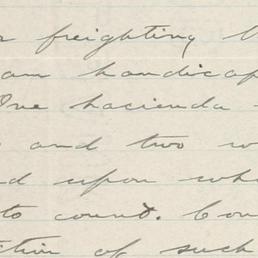 freighting
am handicap
One hacienda
and two w
d upon wh
to count. Con
ition of such